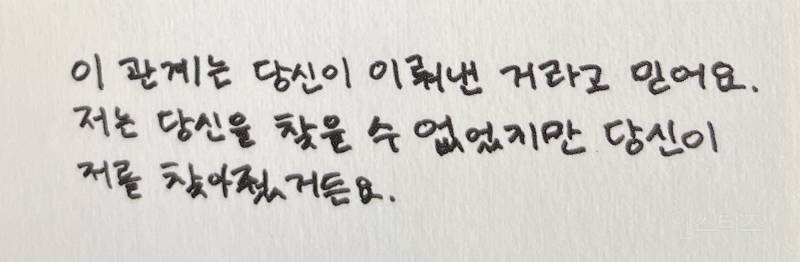 이 관계는 당신이 이뤄낸 거라고 믿어요.
저는 당신을 찾을 수 없었지만 당신이
저를 찾아줬거든요.
인스티즈